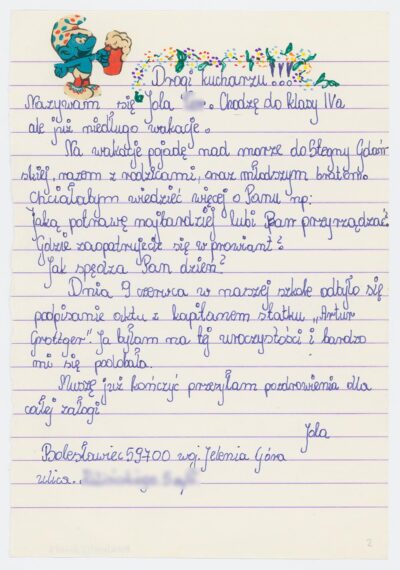 Drogi kucharzu!!!
Nazywam się Jola. Chodzę do klasy IVa
ale już niedługo wakacje.
Na wakacje pojadę nad morze do Stegny Gdań-
skiej, razem z rodzicami, oraz młodszym bratem.
Chciałabym wiedzieć więcej o Panu np:
Jaką potrawę najbardziej lubi Pan przyrządzać?
Gdzie zaopatrujecie się w prowiant?
Jak spędza Pan dzień?
Dnia 9 czerwca w naszej szkole odbyło się
podpisanie aktu z kapitanem statku „Artur
Grottger". Ja byłam na tej uroczystości i bardzo
mi się podobała.
Muszę już kończyć przesyłam pozdrowienia dla
całej załogi
Jola
Bolesławiec 59700 woj. Jelenia Góra
ulica.
2